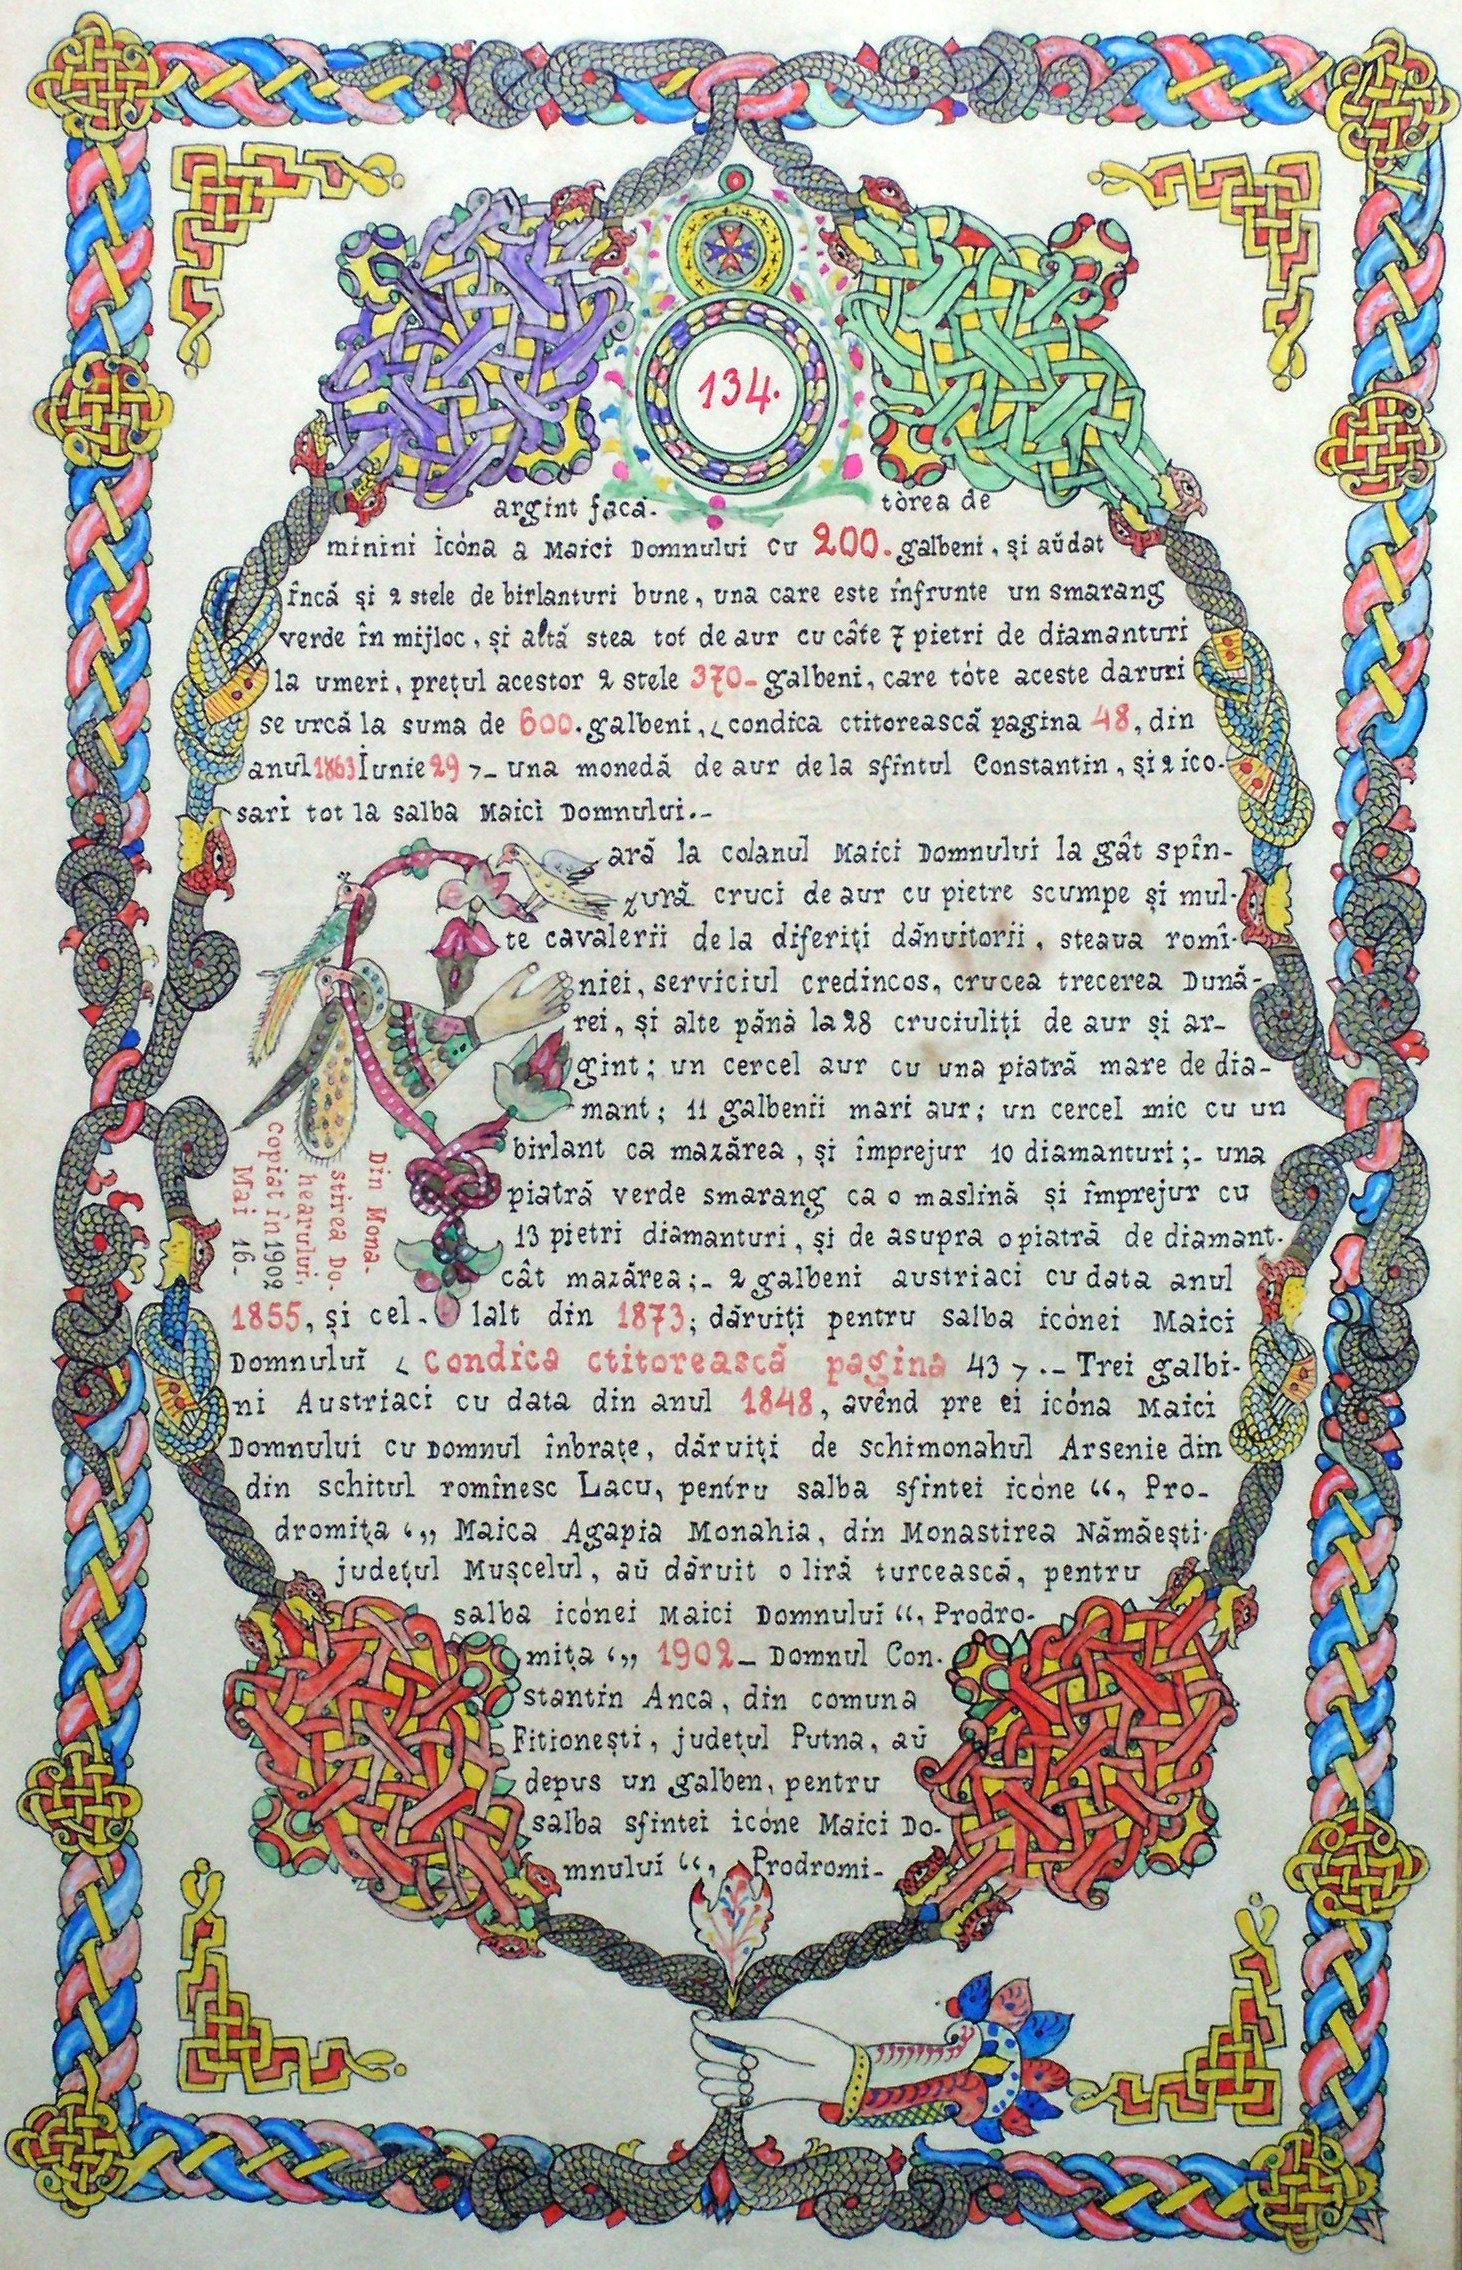 134.
argint facă- tòrea de
minini icóna a Maici Domnului cu 200. galbeni, și aŭdat
încă și 2 stele de birlanturi bune, una care este înfrunte un smarang
verde în mijloc, și altă stea tot de aur cu câte 7 pietri de diamanturi
la umeri, prețul acestor 2 stele 370- galbeni, care tóte aceste daruri
se urcă la suma de 600. galbeni, < condica ctitorească pagina 48, din
anul 1863 Iunie 29 >- una monedă de aur de la sfîntul Constantin, și 2 ico-
sari tot la salba Maici Domnului.-
ară la colanul Maici Domnului la gât spîn-
zură cruci de aur cu pietre scumpe și mul-
te cavalerii de la diferiți dănuitorii, steaua romî-
niei, serviciul credincos, crucea trecerea Dună-
rei, și alte până la 28 cruciuliți de aur și ar-
gint; un cercel aur cu una piatră mare de dia-
mant; 11 galbenii mari aur; un cercel mic cu un
birlant ca mazărea, și împrejur 10 diamanturi;- una
piatră verde smarang ca o maslină și împrejur cu
13 pietri diamanturi, și de asupra o piatră de diamant-
cât mazărea;- 2 galbeni austriaci cu data anul
1855, și cel- lalt din 1873; dăruiți pentru salba icónei Maici
Domnului < condica ctitorească pagina 43 >.- Trei galbi-
ni Austriaci cu data din anul 1848, avênd pre ei icóna Maici
Domnului cu Domnul înbrațe, dăruiți de schimonahul Arsenie din
din schitul romînesc Lacu, pentru salba sfintei icóne “, Pro-
dromița ‘„ Maica Agapia Monahia, din Monastirea Nămăești-
județul Mușcelul, aŭ dăruit o liră turcească, pentru
salba icónei Maici Domnului “, Prodro-
mița ‘„ 1902- Domnul Con-
stantin Anca, din comuna
Fitionești, județul Putna, aŭ
depus un galben, pentru
salba sfintei icóne Maici Do-
mnului “, Prodromi-
Din Mona-
stirea Do-
hearului,
copiat în 1902
Mai 16-